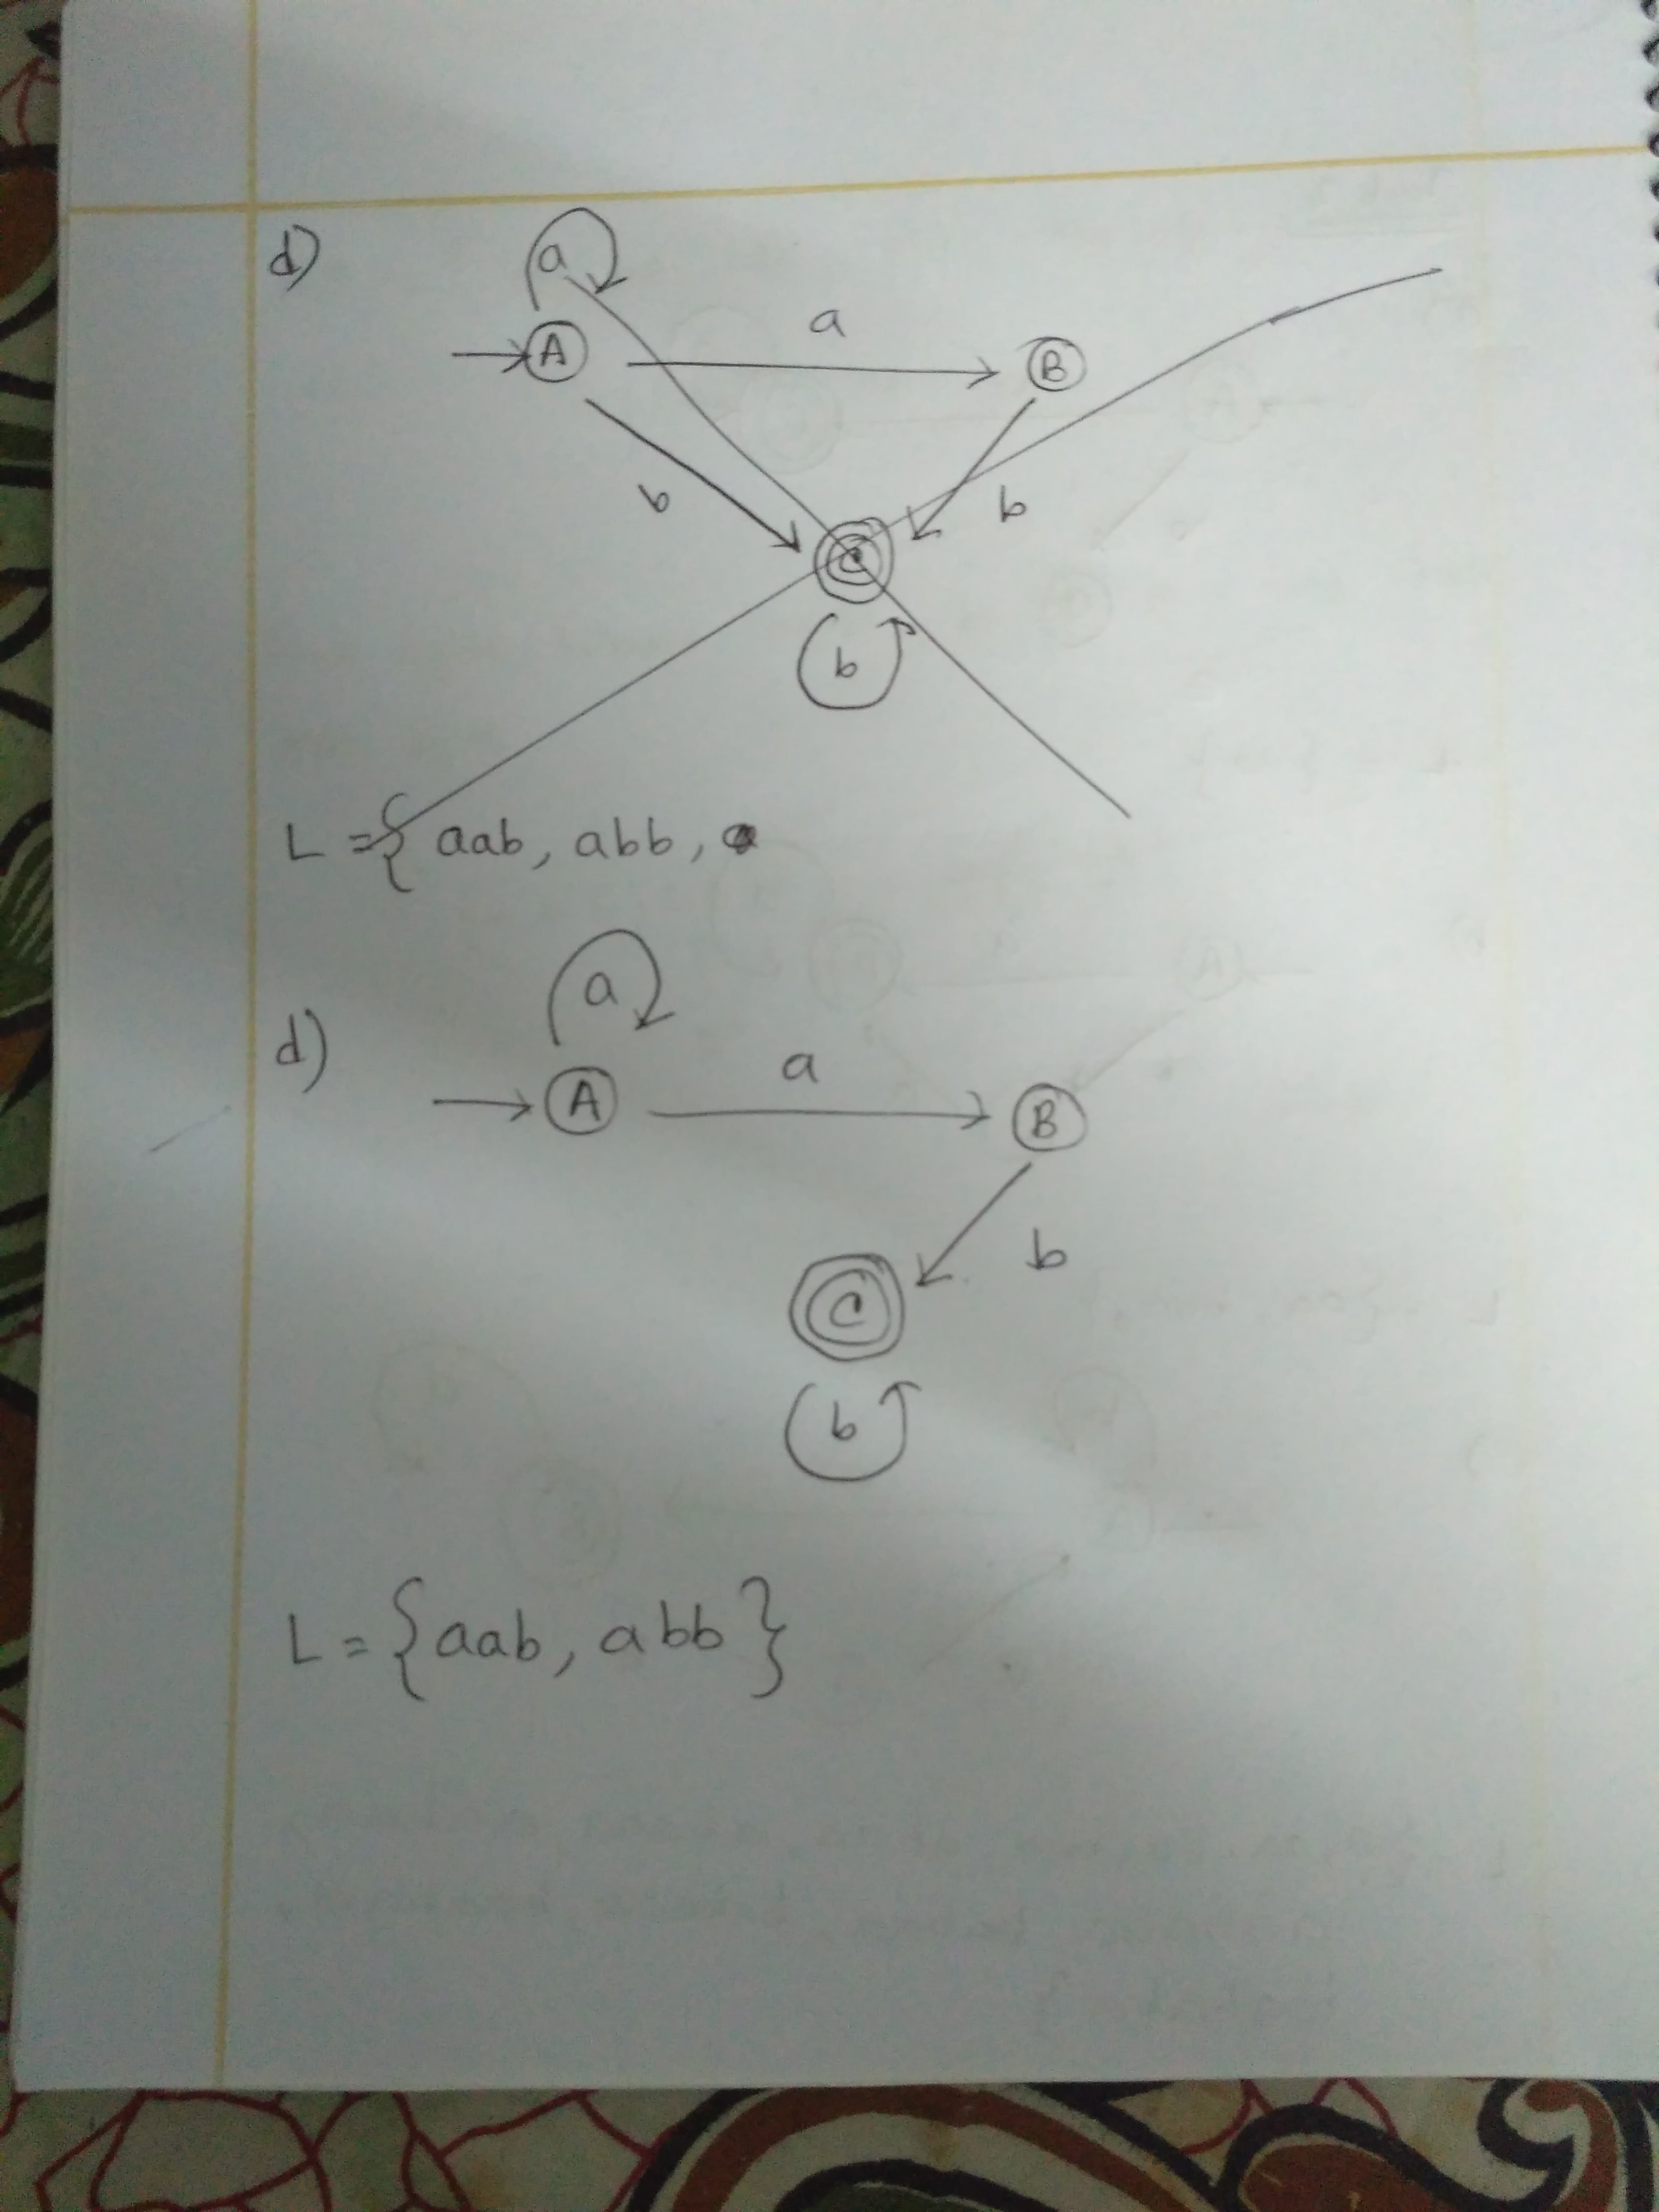 d)
a
A a B
b b
C
b
L = { aab, abb,
d)
a
A a B
b
C
b
L = { aab, abb }